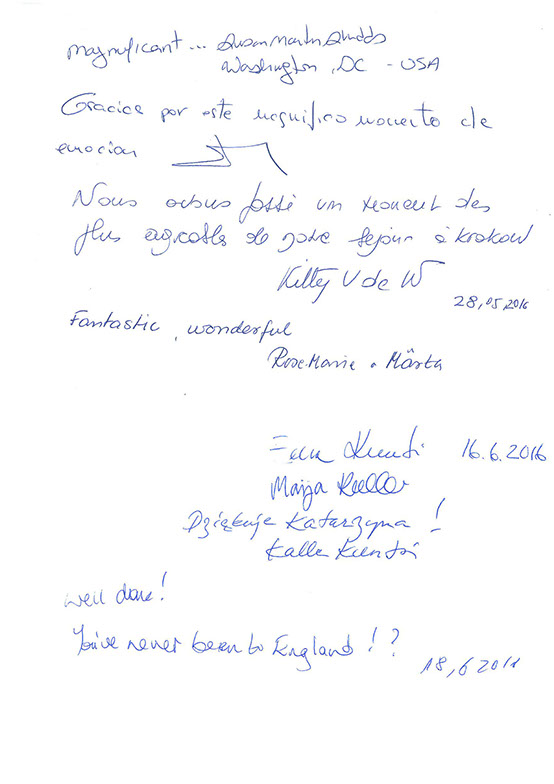 Magnificant ... Susan Martin
Washington, DC - USA
Gracias por este magnifico momento de
emocion
Nous avons passé un moment des
plus agreable de notre sejour à Krakow
Kitty V de W
28,05,2016
Fantastic, wonderful
RoseMarie & Märta
16.6.2016
Maija
Dziękuje Katarzyna!
Kalle
well done!
You've never been to England!?
18,6 2016